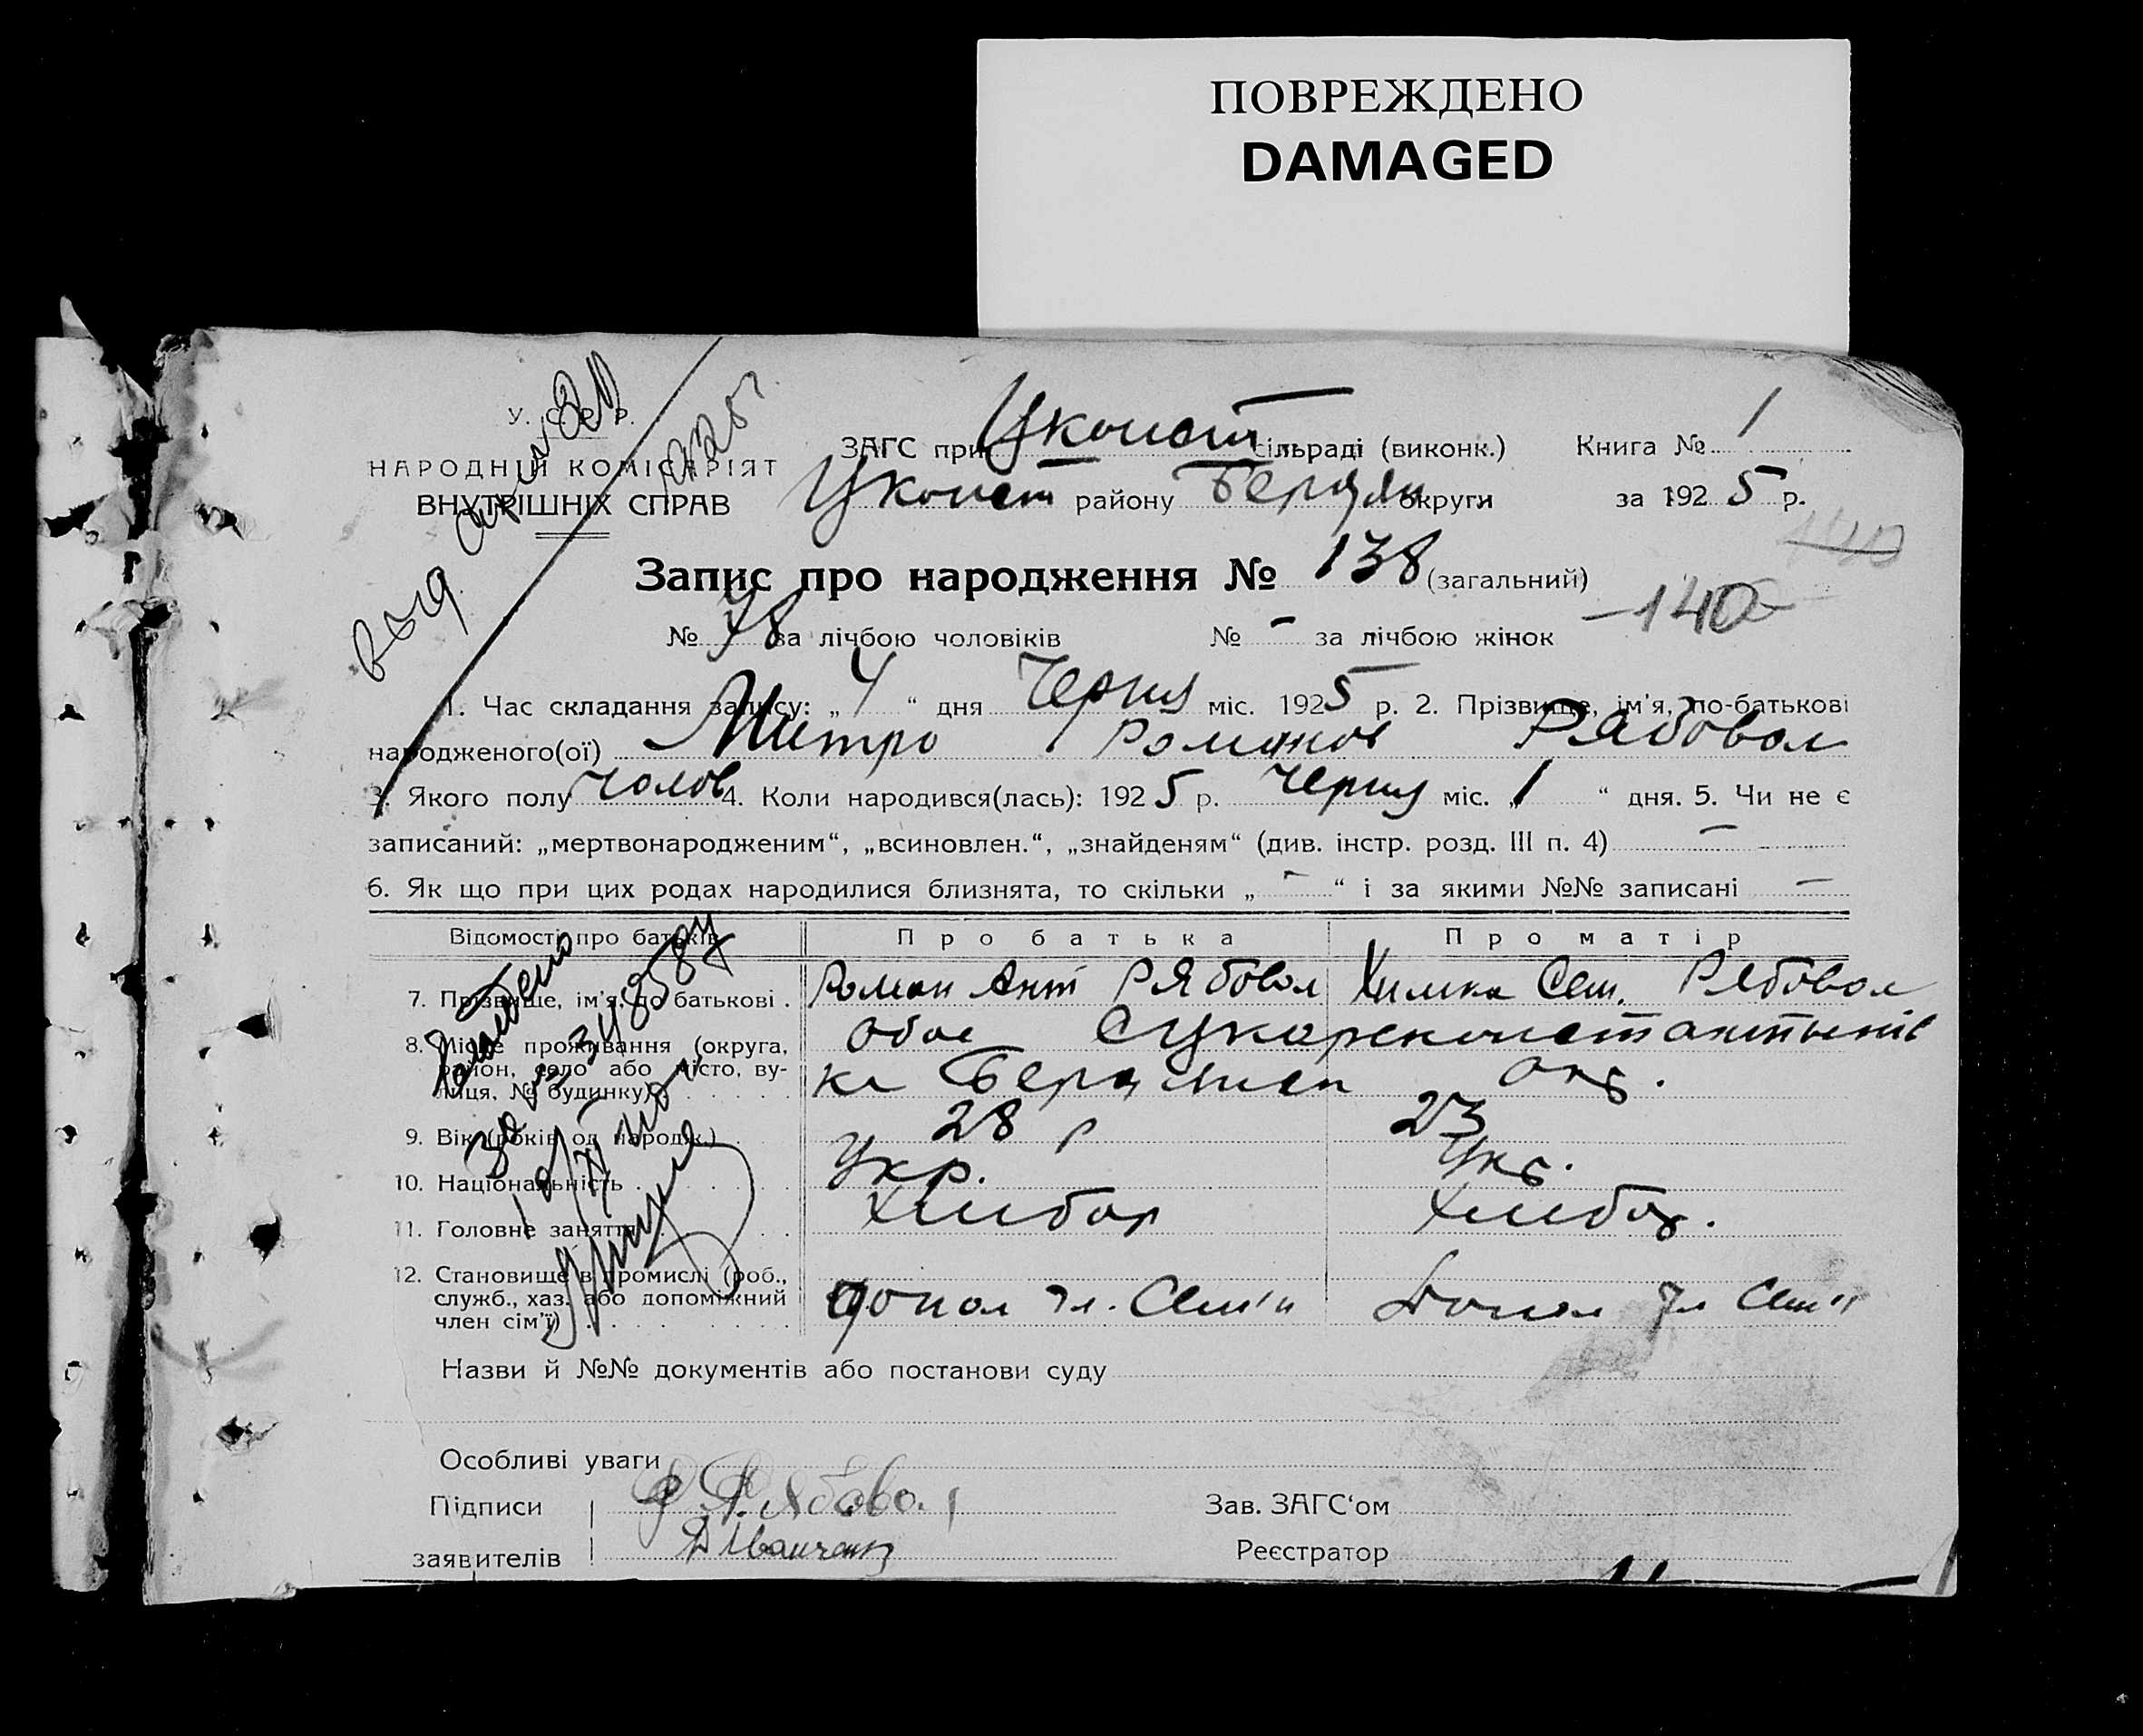 ПОВРЕЖДЕНО
DAMAGED
У. С. Р. Р.
НАРОДНІЙ КОМІСАРІЯТ
ВНУТРІШНІХ СПРАВ
ЗАГС при Цконст сільраді (виконк.) Книга № 1
Цконст району Бердян округи за 1925 р.
140
Запис про народження № 138 (загальний)
№ 78 за лічбою чоловіків № - за лічбою жінок -140-
1. Час складання запису: „4“ дня Черня міс. 1925 р. 2. Прізвище, ім'я, по-батькові
народженого(ої) Митро Романов Рябовол
3. Якого полу чолов 4. Коли народився(лась): 1925 р. Черня міс. „1“ дня. 5. Чи не є
записаний: „мертвонародженим“, „всиновлен.“, „знайденям“ (див. інстр. розд. III п. 4) -
6. Як що при цих родах народилися близнята, то скільки „-“ і за якими №№ записані -
Відомості про батьків Про батька Про матір
7. Прізвище, ім'я, по батькові. Роман Ант Рябовол Химка Сем. Рябовол
8. Місце проживання (округа, район, село або місто, вулиця, № будинку) обоє
9. Вік (років од народж.) 28 р 23
10. Національність Укр. Укр.
11. Головне заняття Хлибор Хлибор.
12. Становище в промислі (роб.,
служб., хаз. або допоміжний
член сім'ї) допол чл. Сем'и Допол чл Сем'и
Назви й №№ документів або постанови суду
Особливі уваги
Підписи Р Рябовол Зав. ЗАГС'ом
заявителів Д Иванченко Реєстратор